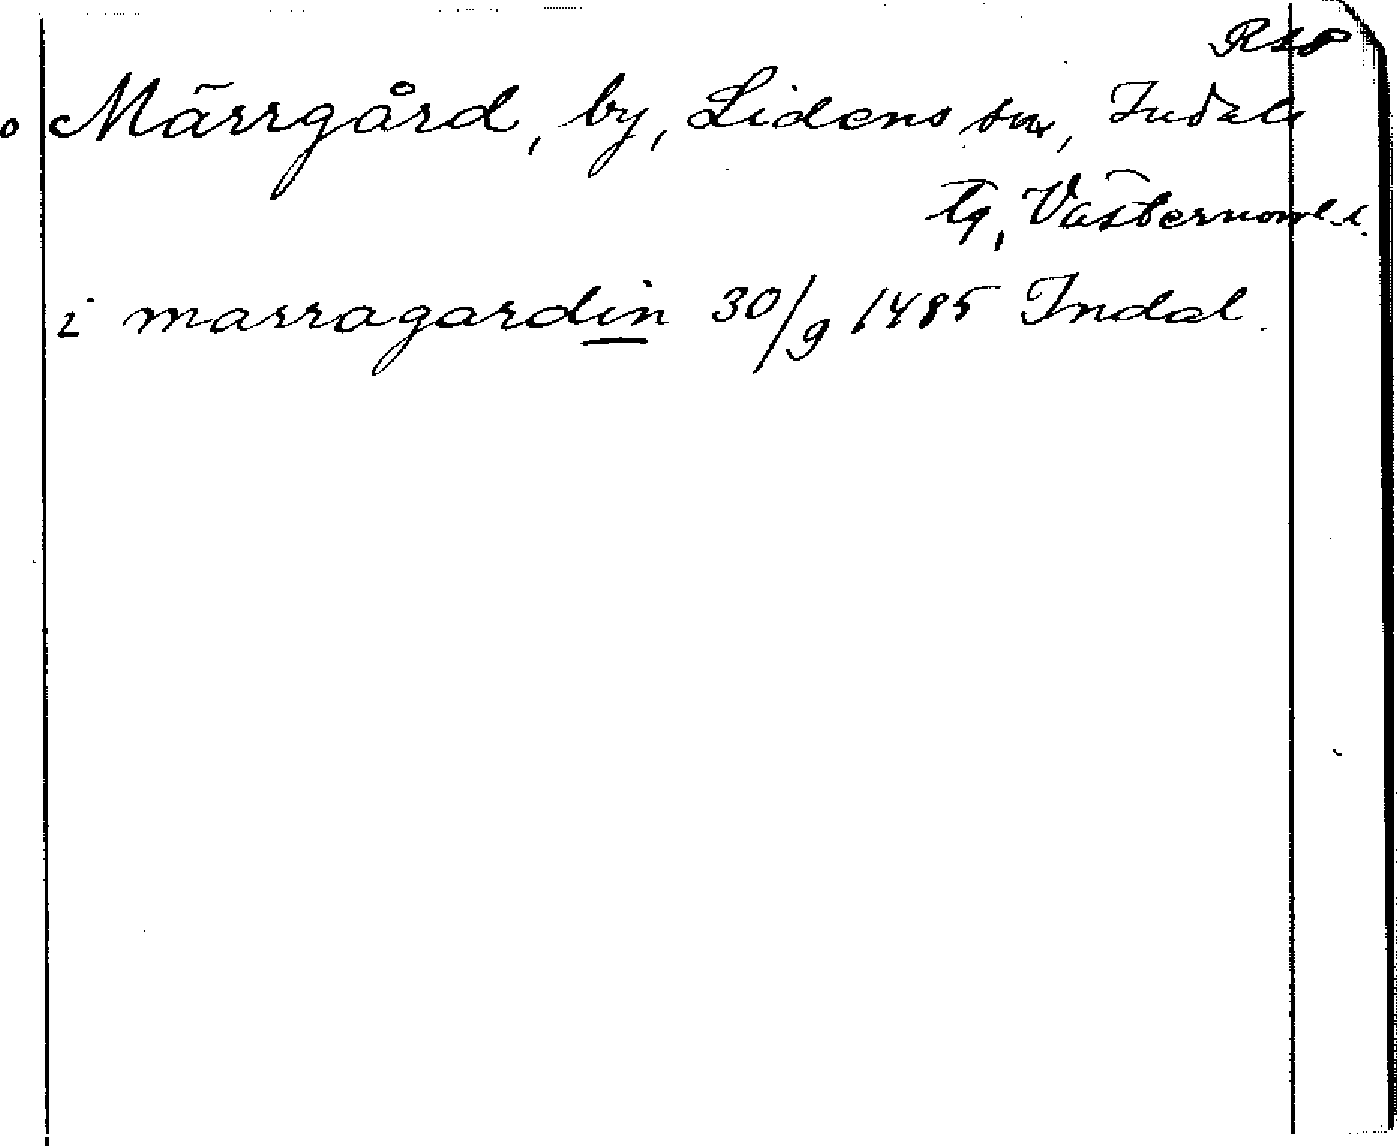 Märrgård, by, Lidens sn, Indals
tg, Västernorrl. l.
i marragardin 30/9 1485 Indal.